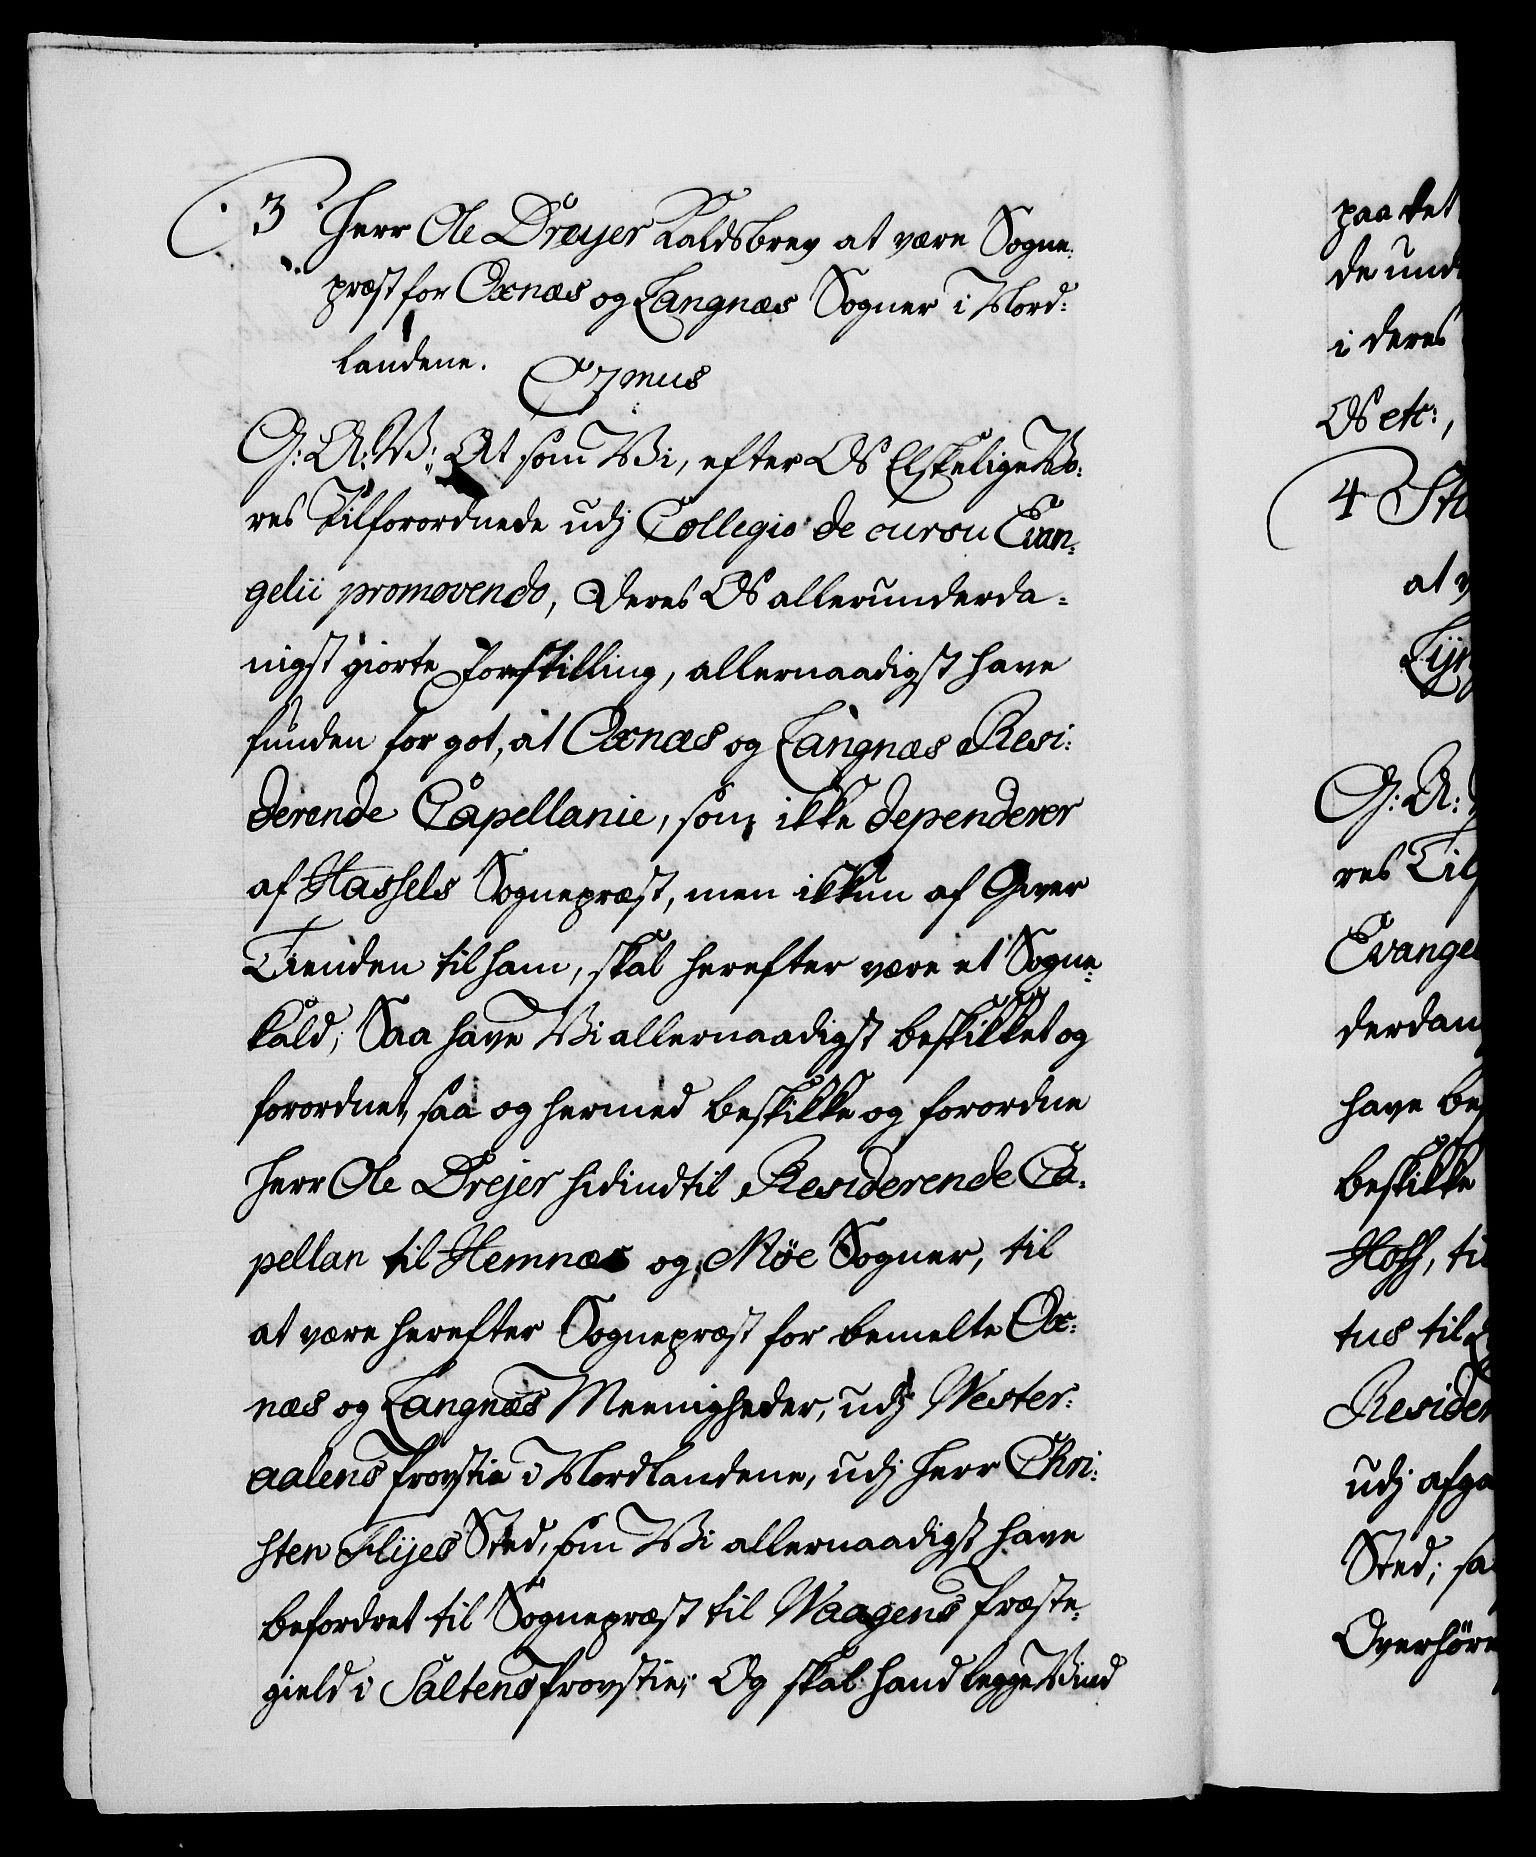 3 Herr Ole Dreyer Kaldsbrev at være Sogne-
præst for Oxnæs og Langnæs Sogner i Nord-
landene.
C7mus
G: A: V: At som Vi, efter Os Elskelige Vo-
res Tilforordnede udj Collegio de cursu Evan-
gelii promovendo, deres Os allerunderda-
nigst giorte Forestilling, allernaadigst have
funden for got, at Oxnæs og Langnæs Resi-
derende Capellanie, som ikke dependerer
af Hassels Sognepræst, men ikkun af Giver
Tienden til ham, skal herefter være et Sogne-
kald; Saa have Vi allernaadigst beskikket og
forordnet, saa og hermed beskikke og forordne
Herr Ole Drejer hidindtil Residerende Ca-
pellan til Hemnæs og Møe Sogner, til
at være herefter Sognepræst for bemelte Ox-
næs og Langnæs Meenigheder, udj Wester-
aalens Provstie i Nordlandene, udj Herr Chri-
sten Flyes Sted, som Vi allernaadigst have
befordret til Sognepræst til Waagens Præste-
gield i Saltens Provstie; Og skal hand legge Vind
paa det
de und
i deres
Os etc:,
4
at
G: A:
res Til
Evange
derdan
have be
beskikke
Hoff, ti
tus til
Residen
udj afga
Sted; sa
Overhøre